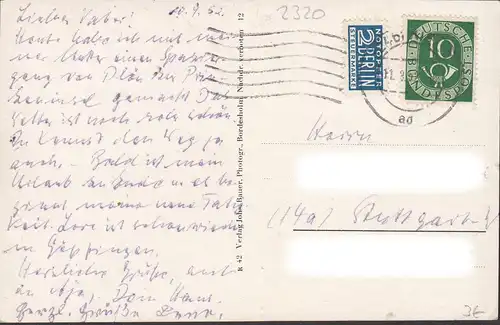 Lieber Vater! 10.9.52.
Heute habe ich mit mei-
ner Mutter einen Spazier-
gang von Plön zur Prin-
zeninsel gemacht. Das
Wetter ist noch sehr schön.
Du kennst den Weg ja
auch. Bald ist mein
Urlaub zu Ende u. es be-
ginnt meine neue Tätig-
keit. Lore ist schon wieder
in Göppingen.
Herzliche Grüße, auch
an Dein Hans.
Herzl. Grüße Lore.
R 42 Verlag Johs. Bauer, Photogr., Bordesholm, Nachdr. verboten 12
2320
NOTOPFER
2
BERLIN
STEUERMARKE
DEUTSCHE POST
10
BUNDESPOST
ad
Herrn
(14a) Stuttgart-
3€